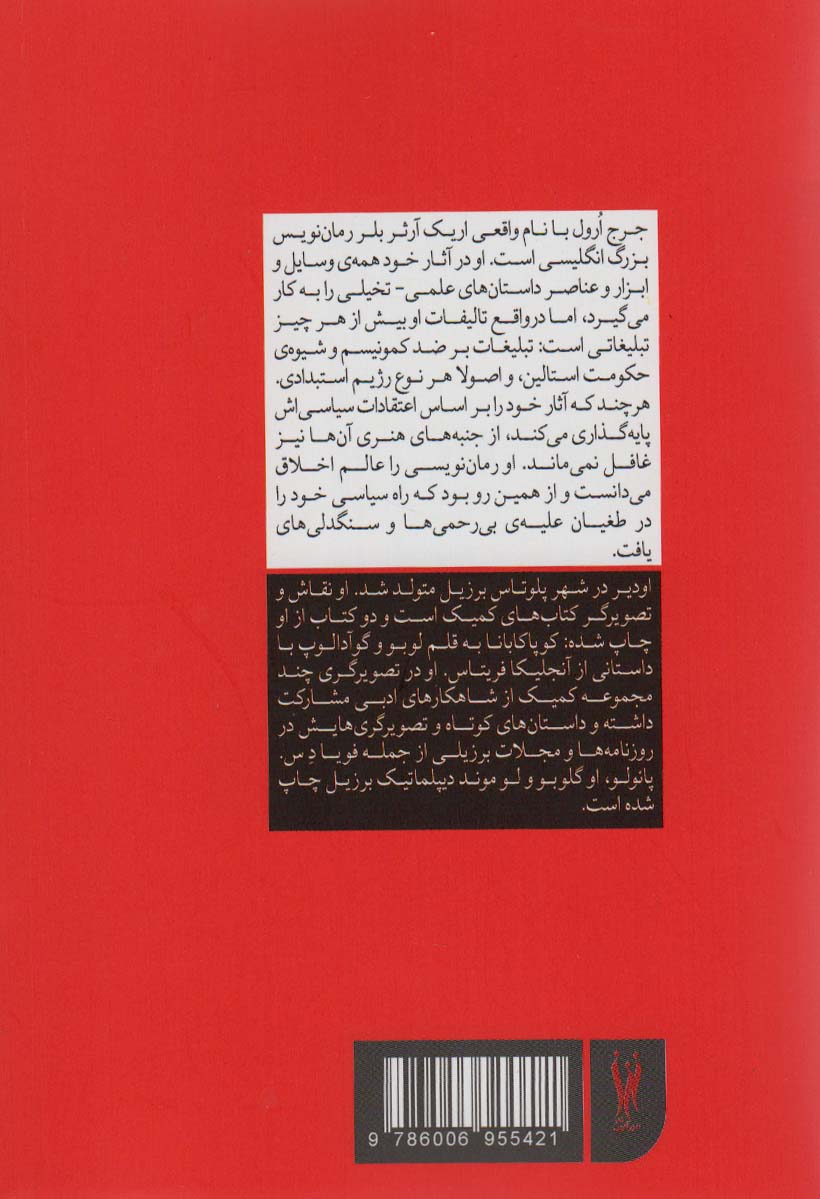 جرج اُرول با نام واقعی اریک آرثر بلر رمان‌نویس
بزرگ انگلیسی است. او در آثار خود همه‌ی وسایل و
ابزار و عناصر داستان‌های علمی- تخیلی را به کار
می‌گیرد، اما درواقع تالیفات او بیش از هر چیز
تبلیغاتی است: تبلیغات بر ضد کمونیسم و شیوه‌ی
حکومت استالین، و اصولا هر نوع رژیم استبدادی.
هرچند که آثار خود را بر اساس اعتقادات سیاسی‌اش
پایه‌گذاری می‌کند، از جنبه‌های هنری آن‌ها نیز
غافل نمی‌ماند. او رمان‌نویسی را عالم اخلاق
می‌دانست و از همین رو بود که راه سیاسی خود را
در طغیان علیه‌ی بی‌رحمی‌ها و سنگدلی‌های
یافت.
اودیر در شهر پلوتاس برزیل متولد شد. او نقاش و
تصویرگر کتاب‌های کمیک است و دو کتاب از او
چاپ شده: کوپاکابانا به قلم لوبو و گوآدالوپ با
داستانی از آنجلیکا فریتاس. او در تصویرگری چند
مجموعه کمیک از شاهکارهای ادبی مشارکت
داشته و داستان‌های کوتاه و تصویرگری‌هایش در
روزنامه‌ها و مجلات برزیلی از جمله فویا دِس.
پائولو، او گلوبو و لو موند دیپلماتیک برزیل چاپ
شده است.
9 786006 955421